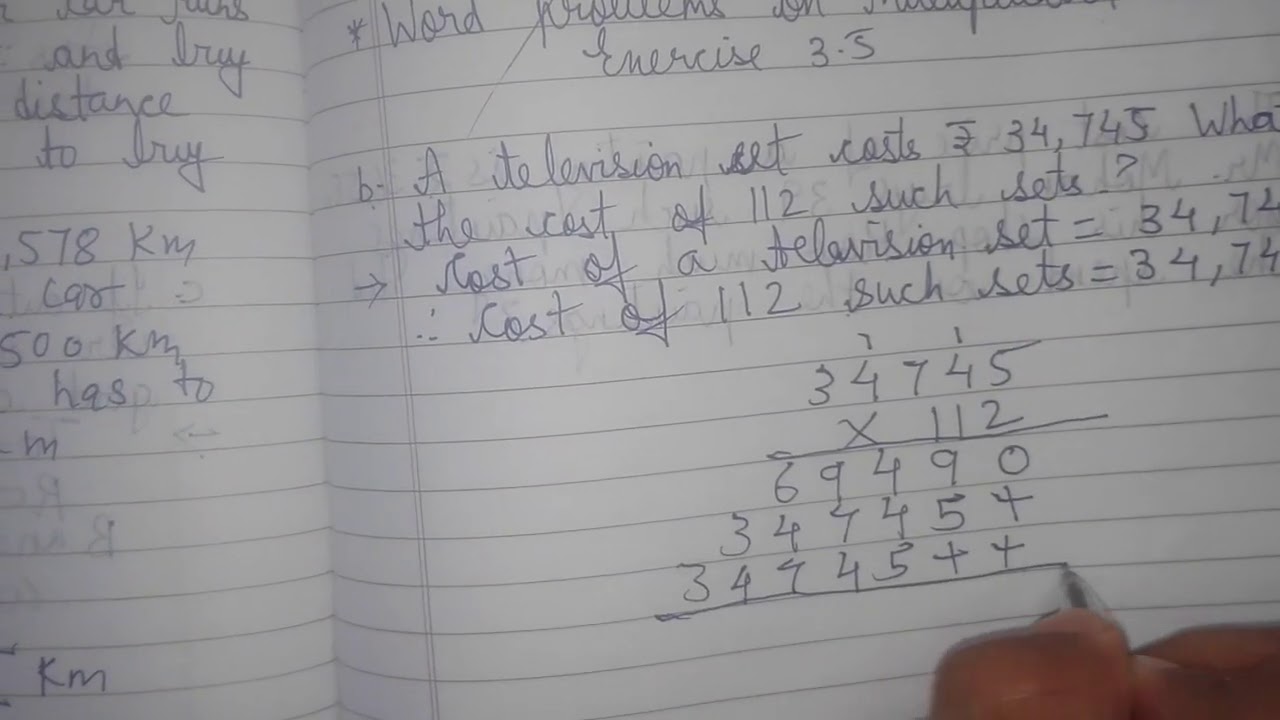 and buy
distance
to buy
,578 Km
Cart =
500 Km
has to
m
Km
* Word problems on
Exercise 3.5
b. A television set costs ₹ 34,745 Wha
the cost of 112 such sets?
→ Cost of a television set = 34,74
∴ Cost of 112 such sets = 34,74
1 1
34745
X 112
69490
34745+
34745++